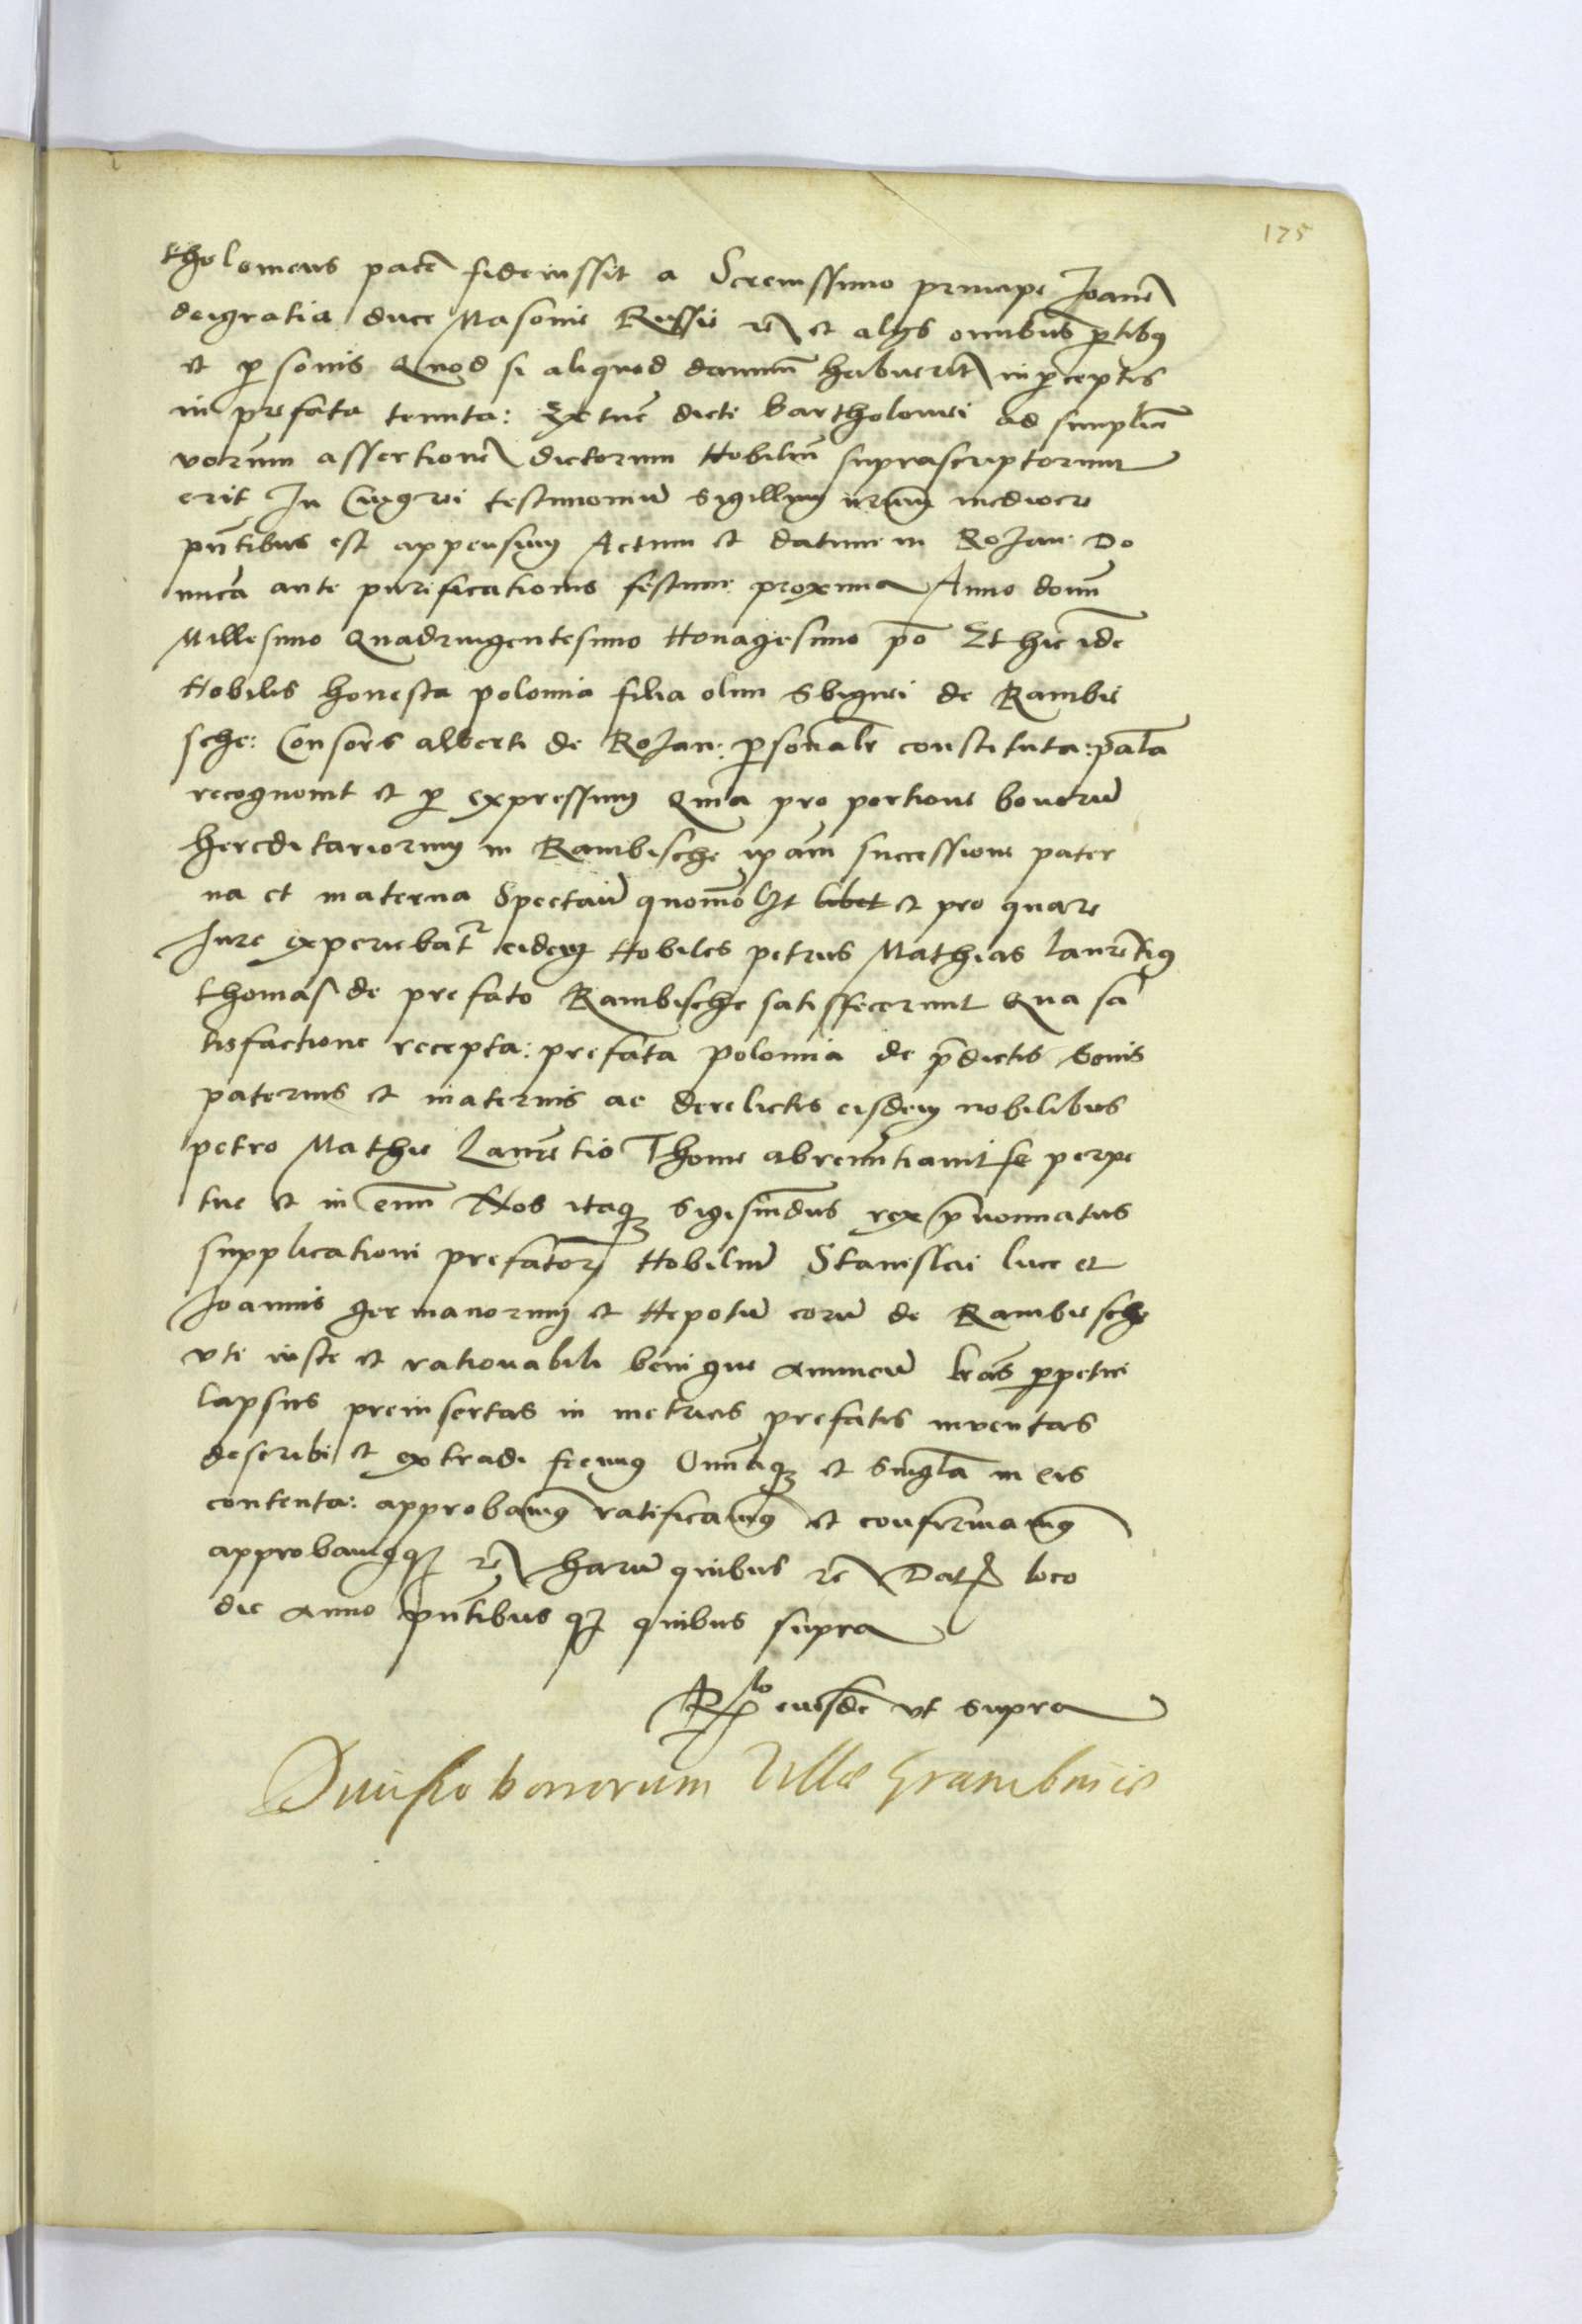 175
tholomeus pacē fideiussit a Serenissimo principe Joanē
dei gratia duce Masovie Russie rē et alijs omnibus ꝑtibꝯ
et ꝑsonis Quod si aliquod damnū habuerīt in ꝑceptis
in prefata tenuta: Extūc dicti bartholomei ad simplicē
verorum assertionē dictorum Nobiliū suprascriptorum
erit In Cuiꝯ rei testimoniū sigillum nrūm mediocre
pn̄tibus est appensum Actum et datum in Rozan Do
minica ante purificationis festum proxima Anno domī
Millesimo Quadringentesimo Nonagesimo pō Et hic idē
Nobilis honesta polonia filia olim Sbignei de Rambie
sche: Consors alberti de Rozan: ꝑsonalr̄ constituta: palā
recognovit et ꝑ expressum Quia pro portione bonorū
hereditariorum in Rambische ip̄am successione pater
na et materna Spectāń quomō lꝫt libet et pro qua re
Jure experiebatr̄ eidem Nobiles petrus Mathias laurētiꝯ
thomas de prefato Rambische satisfecerunt Qua sa
tisfactione recepta: prefata polonia de p̄dictis bonis
paternis et maternis ac derelictis eisdem nobilibus
petro Mathie Laurētio Thome abrenūtiavit se perpe
tue et in evū Nos itaqꝫ Sigismūdus rex p̄nominatus
supplicationi prefatorꝝ Nobiliū Stanislai luce et
Joannis germanorum et Nepotū eorū de Rambiesche
uti iuste et rationabili benigne annuēń lrās ꝑpetui
lapsus preinsertas in metricis prefatis inventas
describi et extradi fecimꝯ Omīaqꝫ et singla in eis
contenta: approbamꝯ ratificamꝯ et confirmamꝯ
approbamꝯqꝫ rē harū quibus rē Datꝭ loco
die anno pn̄tibus qꝫ quibus supra
Rlo eiusdē ut supra
Divisio bonorum Villæ Grambnicis